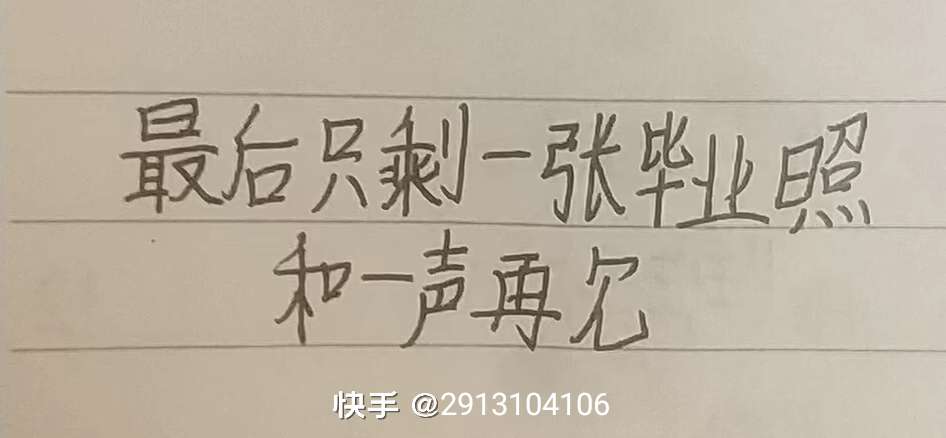 最后只剩一张毕业照
和一声再见
快手 @2913104106